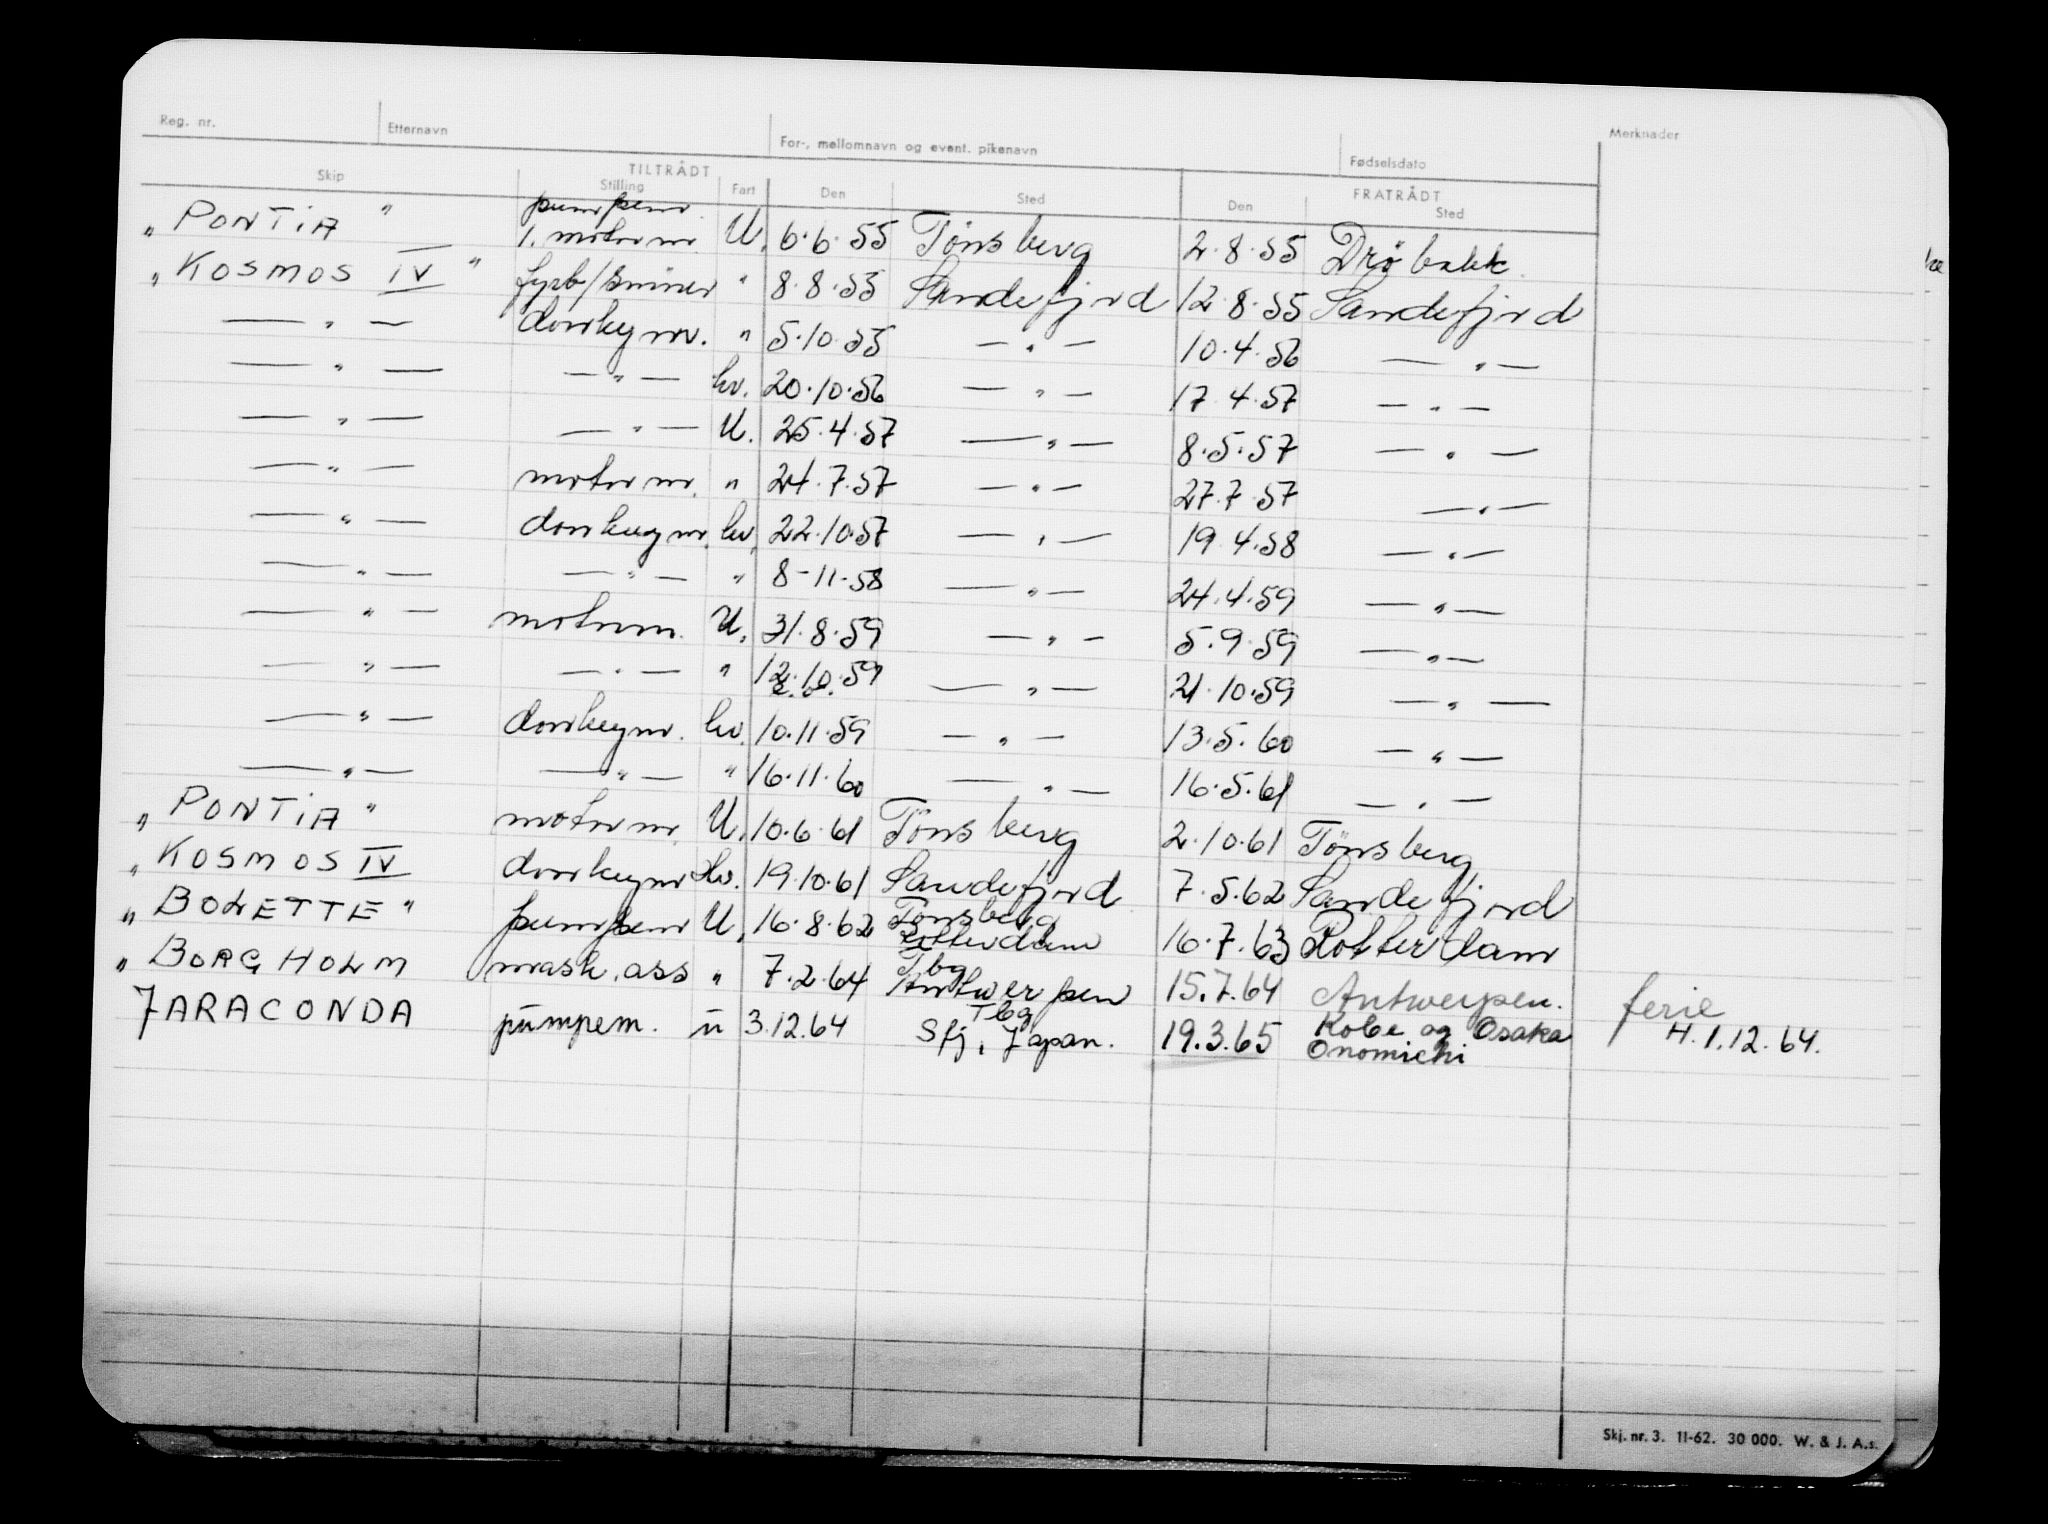 Reg. nr. Etternavn For-, mellomnavn og event. pikenavn Fødselsdato Merknader
TILTRÅDT FRATRÅDT
Skip Stilling Fart Den Sted Den Sted
pumpem.
„ PONTiA " 1. motorm. U. 6.6.55 Tönsberg 2.8.55 Dröbakk.
„ KOSMOS IV " fyrb/smörer " 8.8.55 Sandefjord 12.8.55 Sandefjord
— " — donkeym. " 5.10.55 — " — 10.4.56 — " —
— " — — " — hv. 20.10.56 — " — 17.4.57 — " —
— " — — " — U. 25.4.57 — " — 8.5.57 — " —
— " — motorm. " 24.7.57 — " — 27.7.57 — " —
— " — donkeym. hv. 22.10.57 — " — 19.4.58 — " —
— " — — " — " 8-11-58 — " — 24.4.59 — " —
— " — motorm. U. 31.8.59 — " — 5.9.59 — " —
— " — — " — " 12.10.59 — " — 21.10.59 — " —
— " — donkeym. hv. 10.11.59 — " — 13.5.60 — " —
— " — — " — " 16.11.60 — " — 16.5.61 — " —
„ PONTiA " motorm. U. 10.6.61 Tönsberg 2.10.61 Tönsberg
„ KOSMOS IV donkeym hv. 19.10.61 Sandefjord 7.5.62 Sandefjord
„ BOLETTE " pumpem U. 16.8.62 Tönsberg
Rotterdam 16.7.63 Rotterdam
„ BORGHOLM mask.ass " 7.2.64 Tbg
Antwerpen 15.7.64 Antwerpen. ferie
JARACONDA pumpem. u 3.12.64 Tbg
Sfj, Japan. 19.3.65 Kobe og Osaka
Onomichi H. 1.12.64.
Skj. nr. 3. 11-62. 30 000. W. & J. A.s.